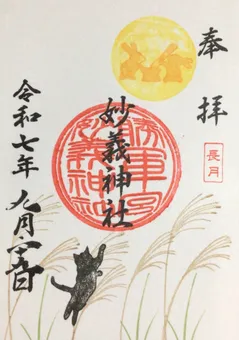 奉拝
長月
妙義神社
令和七年 九月 日